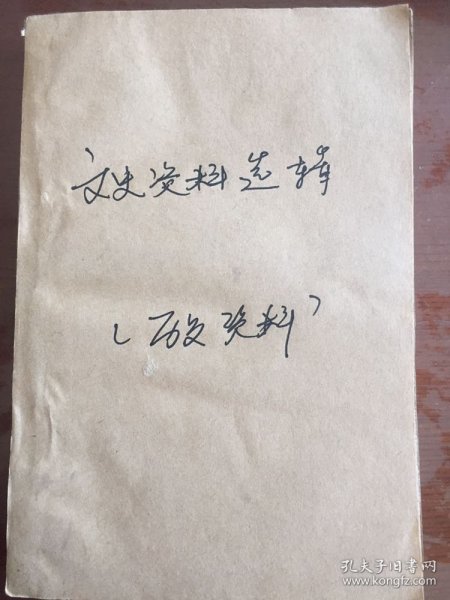 文史资料选辑
（历史资料）
孔夫子旧书网
www.kongfz.com